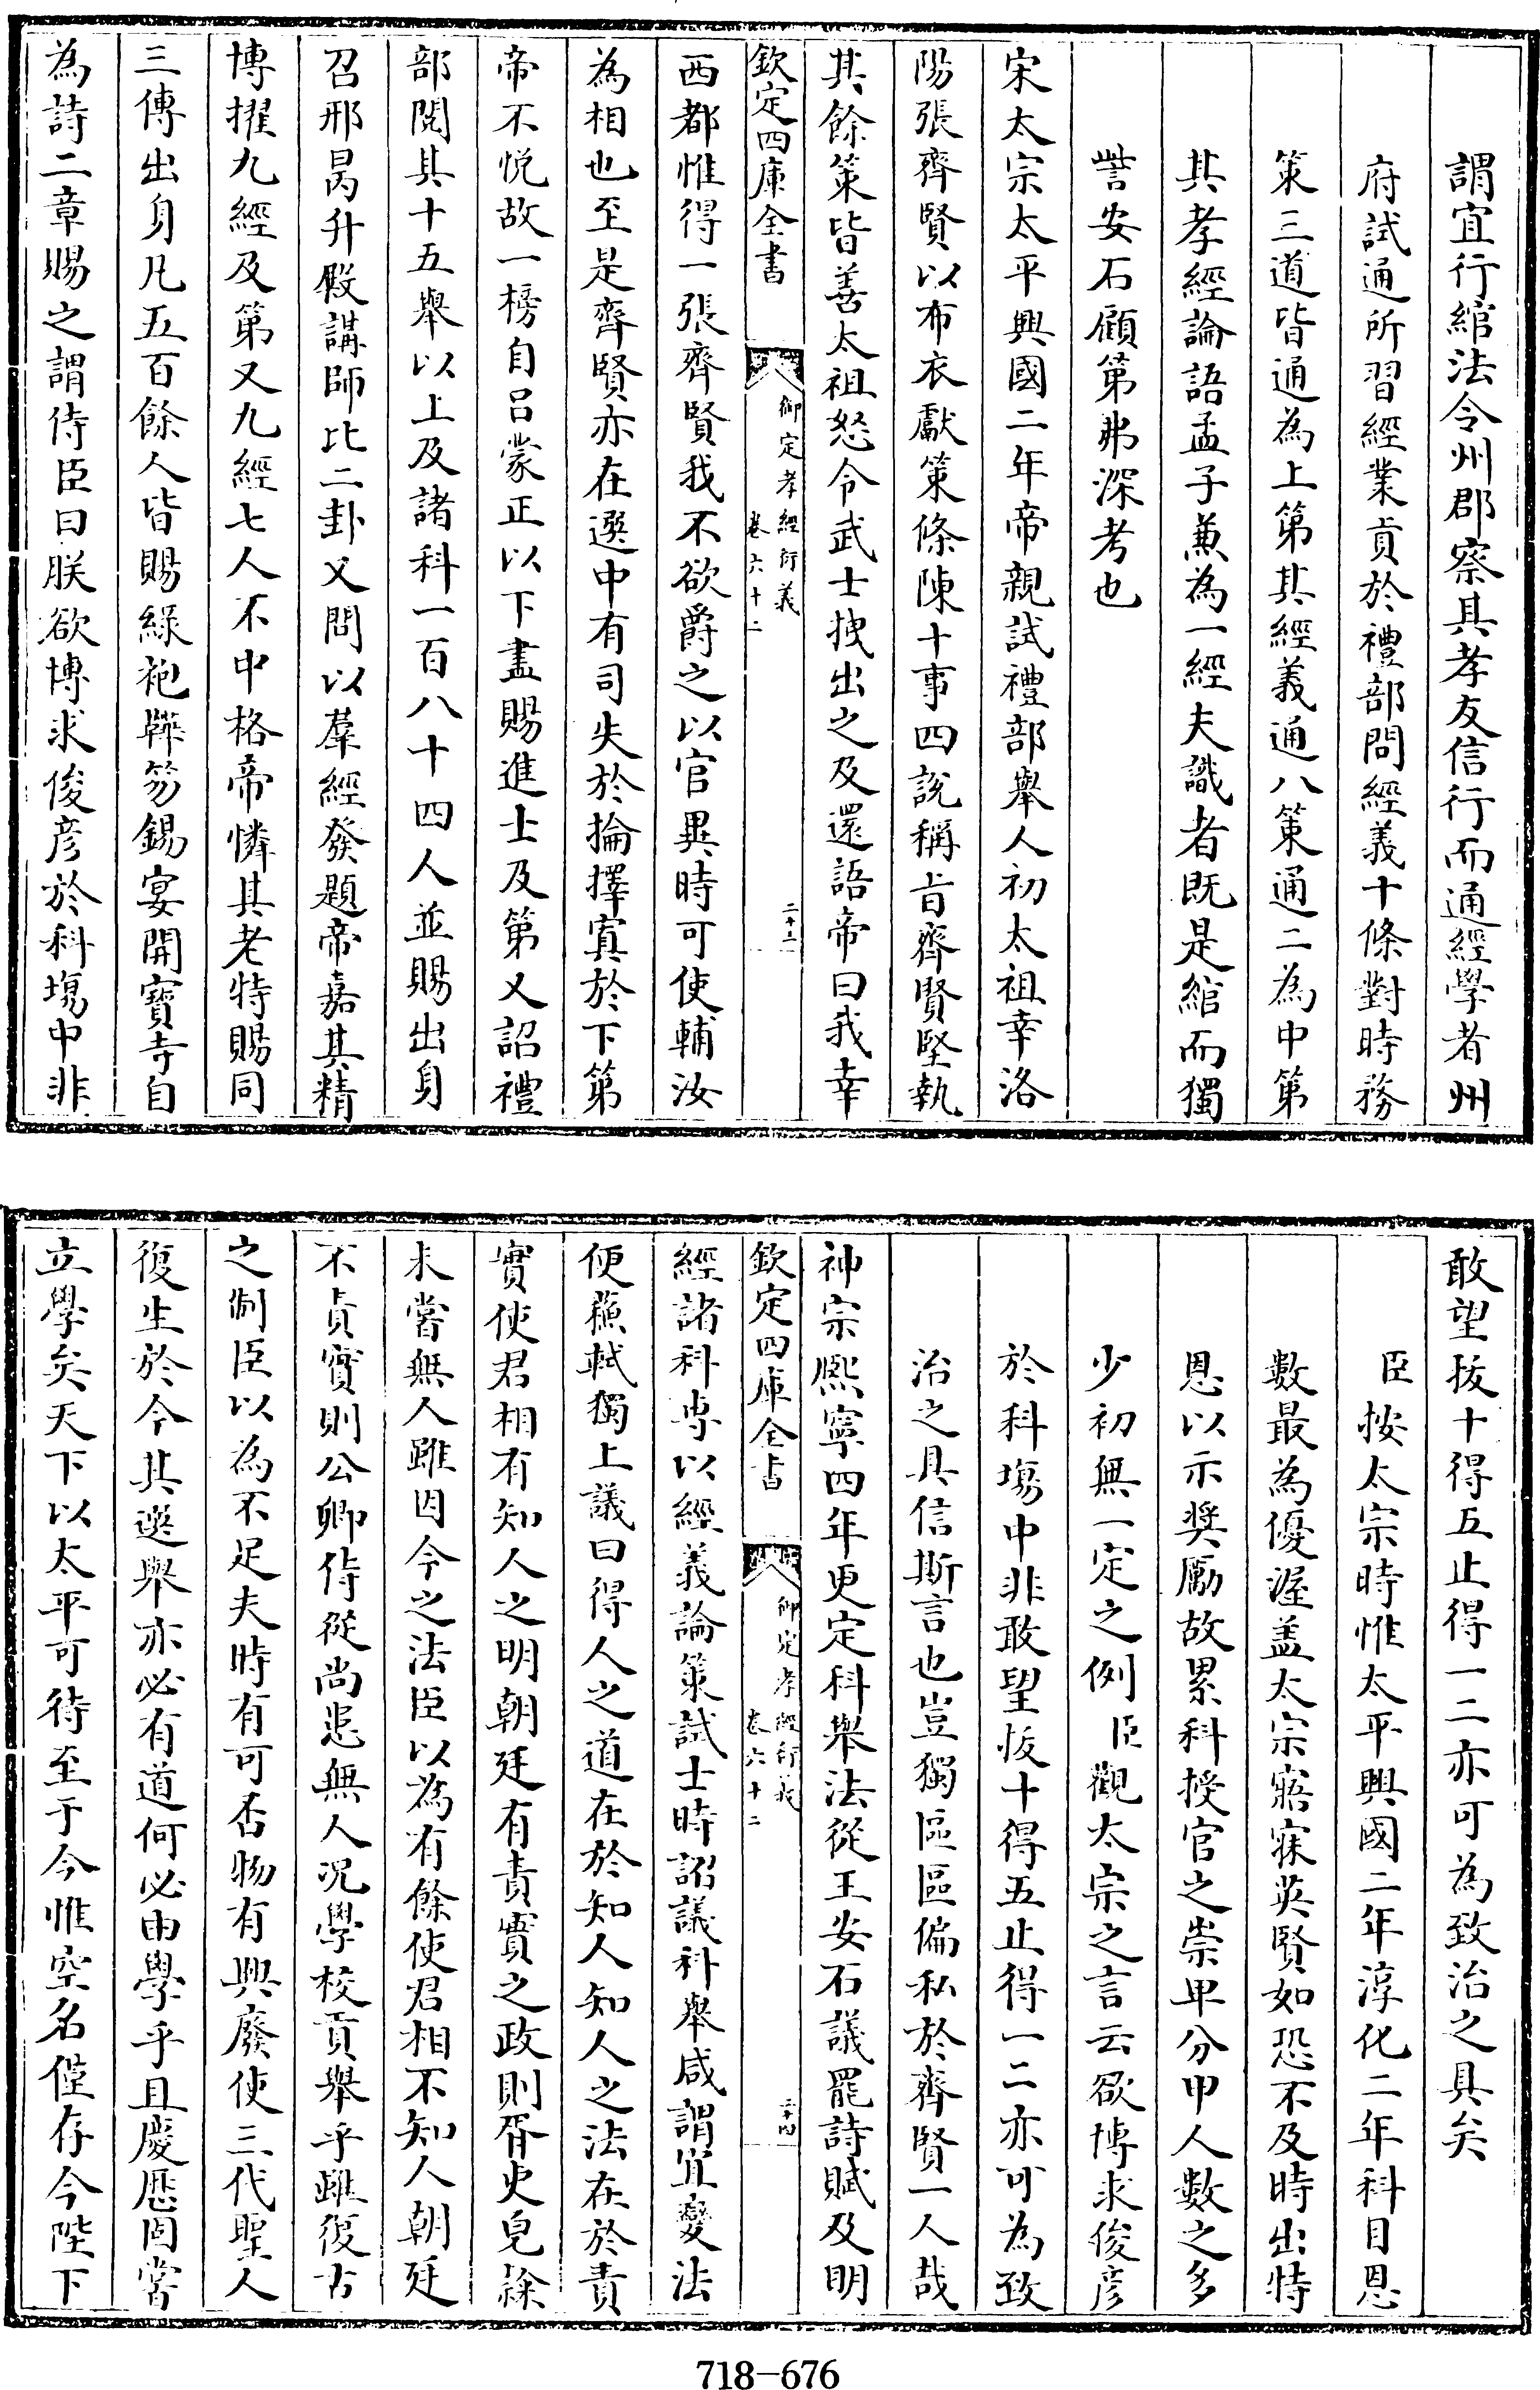 謂宜行綰法令州郡察其孝友信行而通經學者州
府試通所習經業貢於禮部問經義十條對時務
策三道皆通為上第其經義通八策通二為中第
其孝經論語孟子兼為一經夫識者既是綰而獨
訾安石顧第弗深考也
宋太宗太平興國二年帝親試禮部舉人初太祖幸洛
陽張齊賢以布衣獻策條陳十事四說稱旨齊賢堅執
其餘策皆善太祖怒令武士拽出之及還語帝曰我幸
欽定四庫全書
御定孝經衍義
卷六十二
二十三
西都惟得一張齊賢我不欲爵之以官異時可使輔汝
為相也至是齊賢亦在選中有司失於掄擇寘於下第
帝不悅故一榜自呂蒙正以下盡賜進士及第又詔禮
部閱其十五舉以上及諸科一百八十四人並賜出身
召邢昺升殿講師比二卦又問以羣經發題帝嘉其精
博擢九經及第又九經七人不中格帝憐其老特賜同
三傳出身凡五百餘人皆賜綠袍鞾笏錫宴開寶寺自
為詩二章賜之謂侍臣曰朕欲博求俊彦於科塲中非
敢望拔十得五止得一二亦可為致治之具矣
臣按太宗時惟太平興國二年淳化二年科目恩
數最為優渥蓋太宗寤寐英賢如恐不及時出特
恩以示獎勵故累科授官之崇卑分甲人數之多
少初無一定之例臣觀太宗之言云欲博求俊彦
於科塲中非敢望拔十得五止得一二亦可為致
治之具信斯言也豈獨區區偏私於齊賢一人哉
神宗熙寧四年更定科舉法從王安石議罷詩賦及明
欽定四庫全書
御定孝經衍義
卷六十二
二十四
經諸科專以經義論策試士時詔議科舉咸謂宜變法
便蘇軾獨上議曰得人之道在於知人知人之法在於責
實使君相有知人之明朝廷有責實之政則胥史皂隸
未嘗無人雖因今之法臣以為有餘使君相不知人朝廷
不責實則公卿侍從尚患無人况學校貢舉乎雖復古
之制臣以為不足夫時有可否物有興廢使三代聖人
復生於今其選舉亦必有道何必由學乎且慶厯固嘗
立學矣天下以太平可待至于今惟空名僅存今陛下
718-676